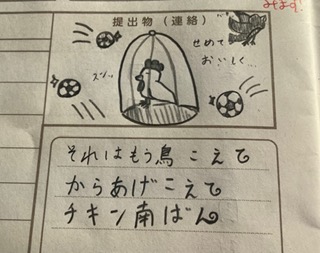 みます!
提出物(連絡)
せめて
おいしく…
スン…
それはもう鳥 こえて
からあげこえて
チキン南ばん